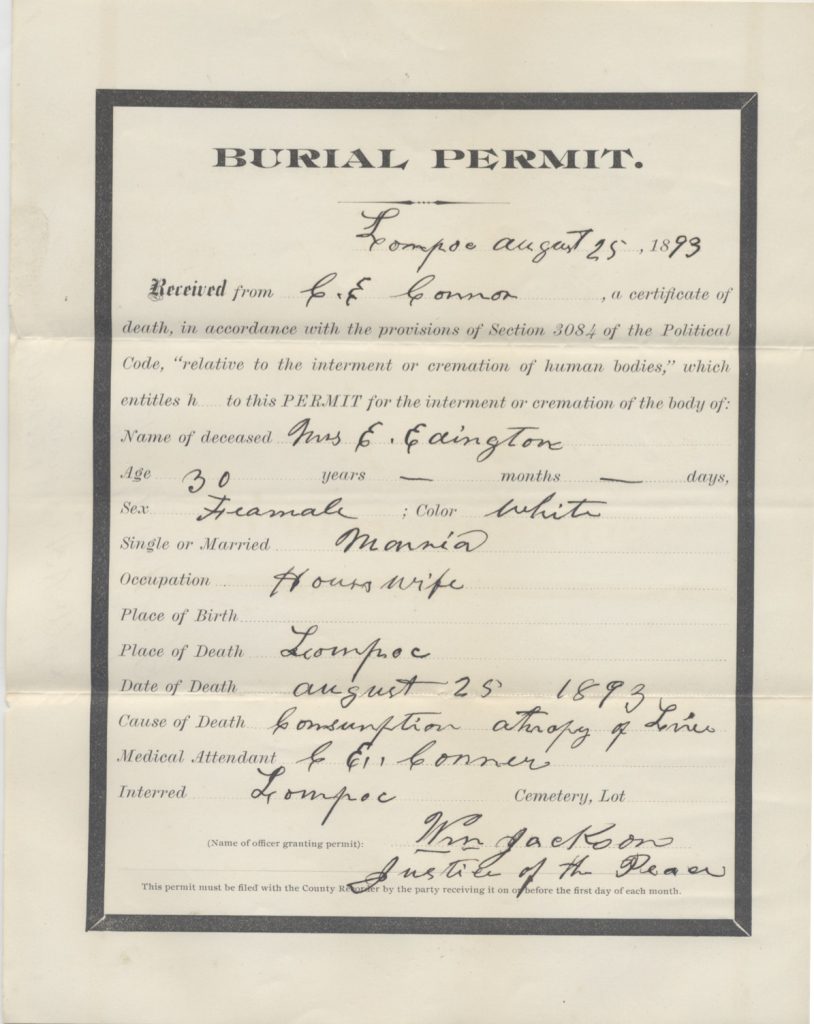 BURIAL PERMIT.
Lompoc august 25, 1893
Received from C. E Connor, a certificate of
death, in accordance with the provisions of Section 3084 of the Political
Code, "relative to the interment or cremation of human bodies," which
entitles h to this PERMIT for the interment or cremation of the body of:
Name of deceased Mrs E. Edington
Age 30 years — months — days,
Sex Feamale ; Color White
Single or Married Married
Occupation House wife
Place of Birth
Place of Death Lompoc
Date of Death august 25 1893
Cause of Death Comsunption atropy of Liver
Medical Attendant C E. Conner
Interred Lompoc Cemetery, Lot
(Name of officer granting permit): Wm Jackson
Justice of the Peace
This permit must be filed with the County Recorder by the party receiving it on or before the first day of each month.